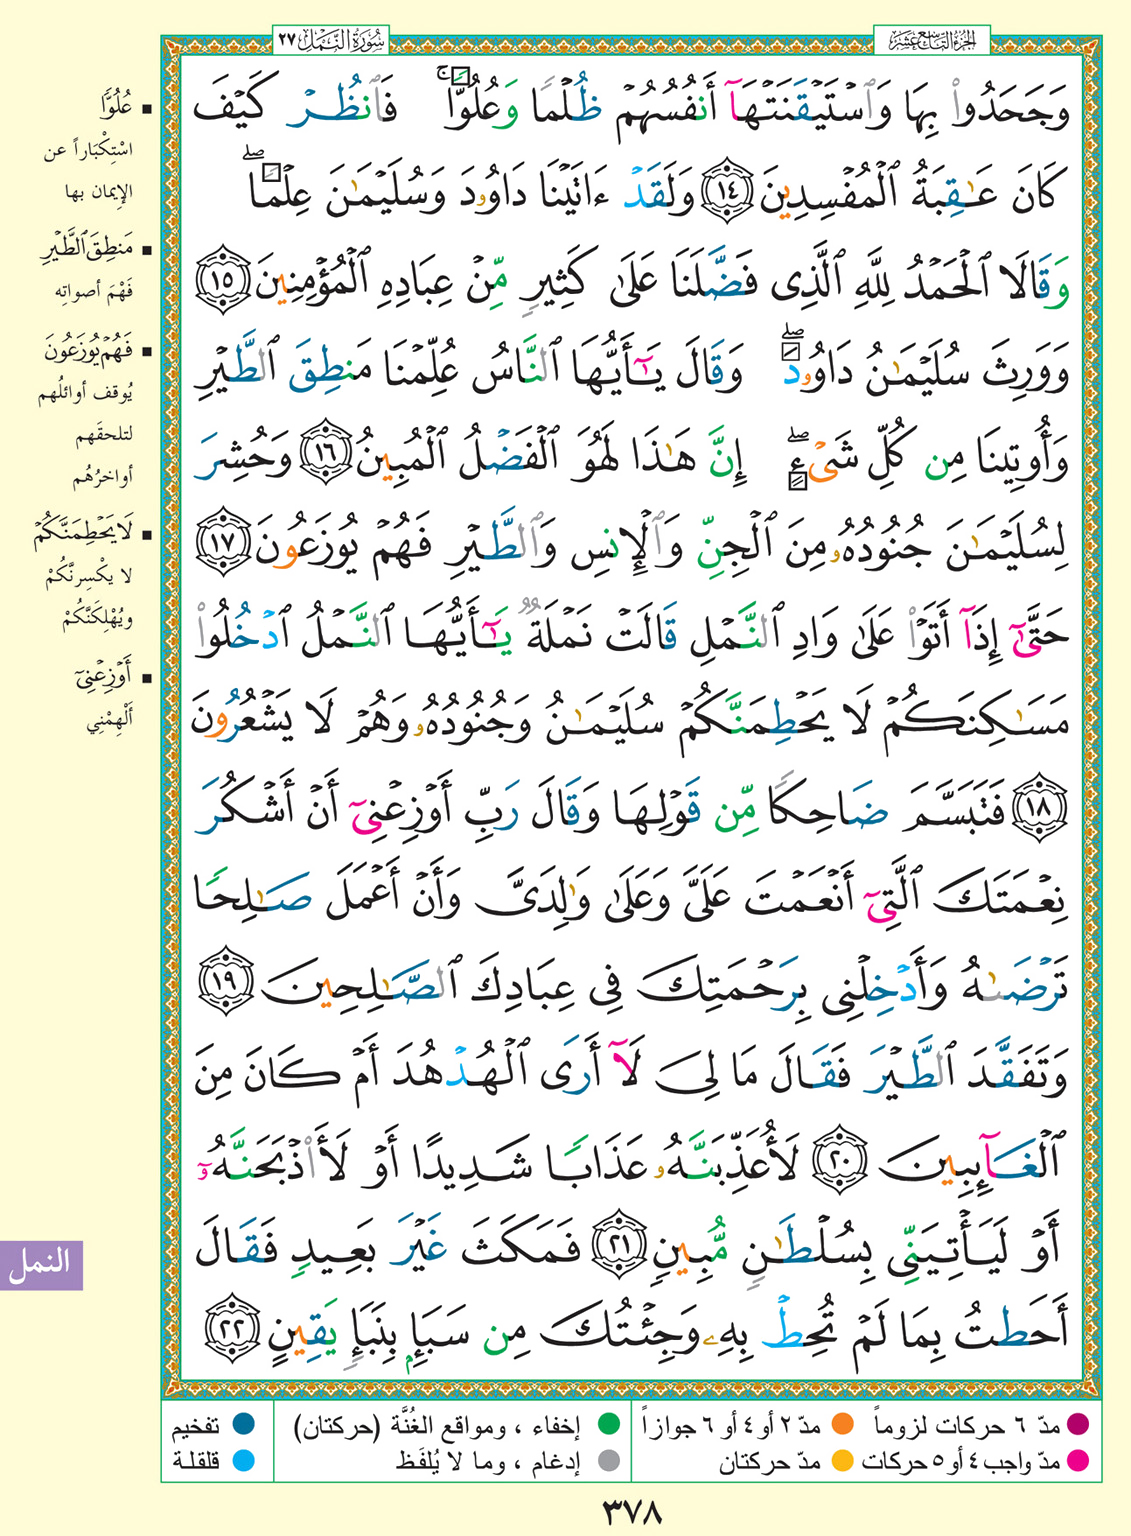 الجزء التاسع عشر
سورة النمل ٢٧
وَجَحَدُوا۟ بِهَا وَٱسْتَيْقَنَتْهَآ أَنفُسُهُمْ ظُلْمًا وَعُلُوًّا ۚ فَٱنظُرْ كَيْفَ
كَانَ عَـٰقِبَةُ ٱلْمُفْسِدِينَ ١٤ وَلَقَدْ ءَاتَيْنَا دَاوُۥدَ وَسُلَيْمَـٰنَ عِلْمًا ۖ
وَقَالَا ٱلْحَمْدُ لِلَّهِ ٱلَّذِى فَضَّلَنَا عَلَىٰ كَثِيرٍ مِّنْ عِبَادِهِ ٱلْمُؤْمِنِينَ ١٥
وَوَرِثَ سُلَيْمَـٰنُ دَاوُۥدَ ۖ وَقَالَ يَـٰٓأَيُّهَا ٱلنَّاسُ عُلِّمْنَا مَنطِقَ ٱلطَّيْرِ
وَأُوتِينَا مِن كُلِّ شَىْءٍ ۖ إِنَّ هَـٰذَا لَهُوَ ٱلْفَضْلُ ٱلْمُبِينُ ١٦ وَحُشِرَ
لِسُلَيْمَـٰنَ جُنُودُهُۥ مِنَ ٱلْجِنِّ وَٱلْإِنسِ وَٱلطَّيْرِ فَهُمْ يُوزَعُونَ ١٧
حَتَّىٰٓ إِذَآ أَتَوْا۟ عَلَىٰ وَادِ ٱلنَّمْلِ قَالَتْ نَمْلَةٌ يَـٰٓأَيُّهَا ٱلنَّمْلُ ٱدْخُلُوا۟
مَسَـٰكِنَكُمْ لَا يَحْطِمَنَّكُمْ سُلَيْمَـٰنُ وَجُنُودُهُۥ وَهُمْ لَا يَشْعُرُونَ
١٨ فَتَبَسَّمَ ضَاحِكًا مِّن قَوْلِهَا وَقَالَ رَبِّ أَوْزِعْنِىٓ أَنْ أَشْكُرَ
نِعْمَتَكَ ٱلَّتِىٓ أَنْعَمْتَ عَلَىَّ وَعَلَىٰ وَٰلِدَىَّ وَأَنْ أَعْمَلَ صَـٰلِحًا
تَرْضَىٰهُ وَأَدْخِلْنِى بِرَحْمَتِكَ فِى عِبَادِكَ ٱلصَّـٰلِحِينَ ١٩
وَتَفَقَّدَ ٱلطَّيْرَ فَقَالَ مَا لِىَ لَآ أَرَى ٱلْهُدْهُدَ أَمْ كَانَ مِنَ
ٱلْغَآئِبِينَ ٢٠ لَأُعَذِّبَنَّهُۥ عَذَابًا شَدِيدًا أَوْ لَأَا۟ذْبَحَنَّهُۥٓ
أَوْ لَيَأْتِيَنِّى بِسُلْطَـٰنٍ مُّبِينٍ ٢١ فَمَكَثَ غَيْرَ بَعِيدٍ فَقَالَ
أَحَطتُ بِمَا لَمْ تُحِطْ بِهِۦ وَجِئْتُكَ مِن سَبَإٍۭ بِنَبَإٍ يَقِينٍ ٢٢
▪ عُلُوًّا
اسْتِكْبَاراً عن
الإيمان بها
▪ مَنطِقَ ٱلطَّيْرِ
فَهْمَ أصواتِه
▪ فَهُمْ يُوزَعُونَ
يُوقف أوائلُهم
لتلحقَهم
أواخرُهُم
▪ لَا يَحْطِمَنَّكُمْ
لا يكْسِرنَّكُمْ
ويُهْلِكَنَّكُمْ
▪ أَوْزِعْنِىٓ
أَلْهِمْنِي
النمل
مدّ ٦ حركات لزوماً مدّ ٢ أو ٤ أو ٦ جوازاً إخفاء ، ومواقع الغُنَّة (حركتان) تفخيم
مدّ واجب ٤ أو ٥ حركات مدّ حركتان إدغام ، وما لا يُلفَظ قلقلة
٣٧٨